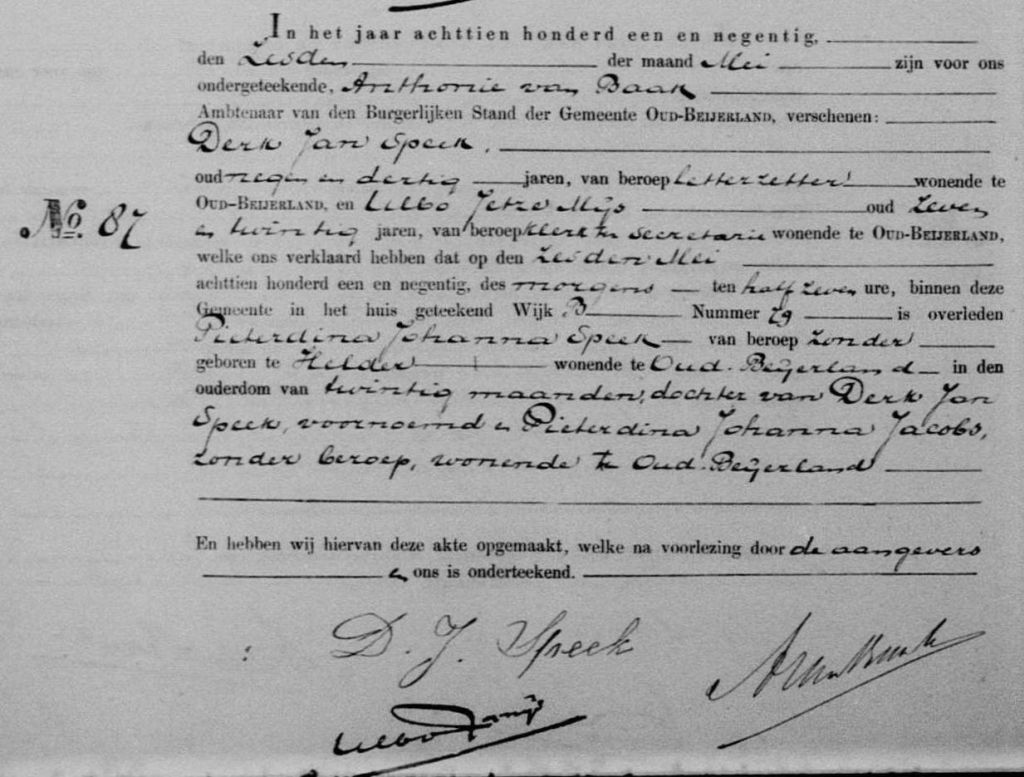 In het jaar achttien honderd een en negentig,
den Zesden der maand Mei zijn voor ons
ondergeteekende, Anthonie van Baak
Ambtenaar van den Burgerlijken Stand der Gemeente OUD-BEIJERLAND, verschenen:
Derk Jan Speek,
oud negen en dertig jaren, van beroep letterzetter wonende te
OUD-BEIJERLAND, en Ulbo Jetze Mijs oud zeven
No. 87 en twintig jaren, van beroep klerk ter secretarie wonende te OUD-BEIJERLAND,
welke ons verklaard hebben dat op den Zesden Mei
achttien honderd een en negentig, des morgens ten half zeven ure, binnen deze
Gemeente in het huis geteekend Wijk B Nummer 79 is overleden
Pieterdina Johanna Speek van beroep zonder
geboren te Helder wonende te Oud-Beijerland in den
ouderdom van twintig maanden, dochter van Derk Jan
Speek, voornoemd en Pieterdina Johanna Jacobs,
zonder beroep, wonende te Oud-Beijerland
En hebben wij hiervan deze akte opgemaakt, welke na voorlezing door de aangevers
en ons is onderteekend.
D. J. Speek
AvanBaak
Ulbo J Mijs